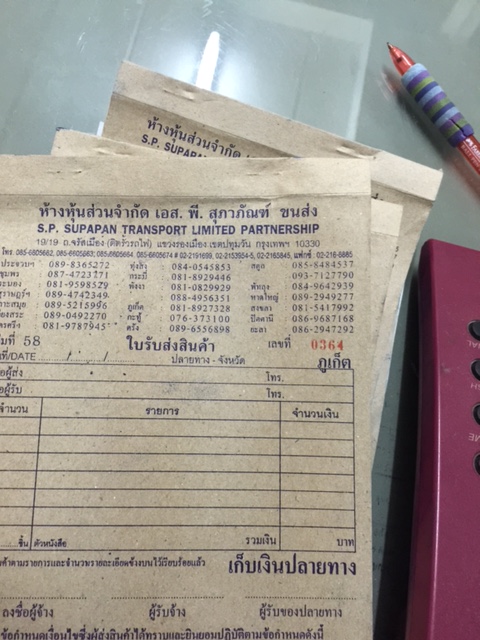 ห้างหุ้นส่วนจำกัด
S.P. SUPAPAN
ห้างหุ้นส่วนจำกัด เอส. พี. สุภาภัณฑ์ ขนส่ง
S.P. SUPAPAN TRANSPORT LIMITED PARTNERSHIP
19/19 ถ.จรัสเมือง (ติดรั้วรถไฟ) แขวงรองเมือง เขตปทุมวัน กรุงเทพฯ 10330
โทร. 085-6605662, 085-6605663, 085-6605664, 085-6605674
ประจวบฯ 089-8365272 ทุ่งสง 084-0545853 สตูล 085-8484537
ชุมพร 087-4723271 กระบี่ 081-8929446 093-7127790
ระนอง 081-9598529 พังงา 081-0829929 พัทลุง 084-9642939
089-4742349 088-4956351 หาดใหญ่ 089-2949277
089-5215956 ภูเก็ต 081-8927328 สงขลา 081-5417992
089-0492270 076-373100 ปัตตานี 086-9687168
081-9787945 ตรัง 089-6556898 ยะลา 086-2947292
58 ใบรับส่งสินค้า เลขที่ 0364
ที่/DATE ปลายทาง - จังหวัด ภูเก็ต
ผู้ส่ง โทร.
ผู้รับ โทร.
จำนวน รายการ จำนวนเงิน
ชิ้น ตัวหนังสือ รวมเงิน บาท
ค้าตามรายการและจำนวนรายละเอียดข้างบนไว้เรียบร้อยแล้ว เก็บเงินปลายทาง
ลงชื่อผู้จ้าง ผู้รับจ้าง ผู้รับของปลายทาง
ข้อกำหนดเงื่อนไขซึ่งผู้ส่งสินค้าได้ทราบและยินยอมปฏิบัติตามข้อกำหนดดังนี้